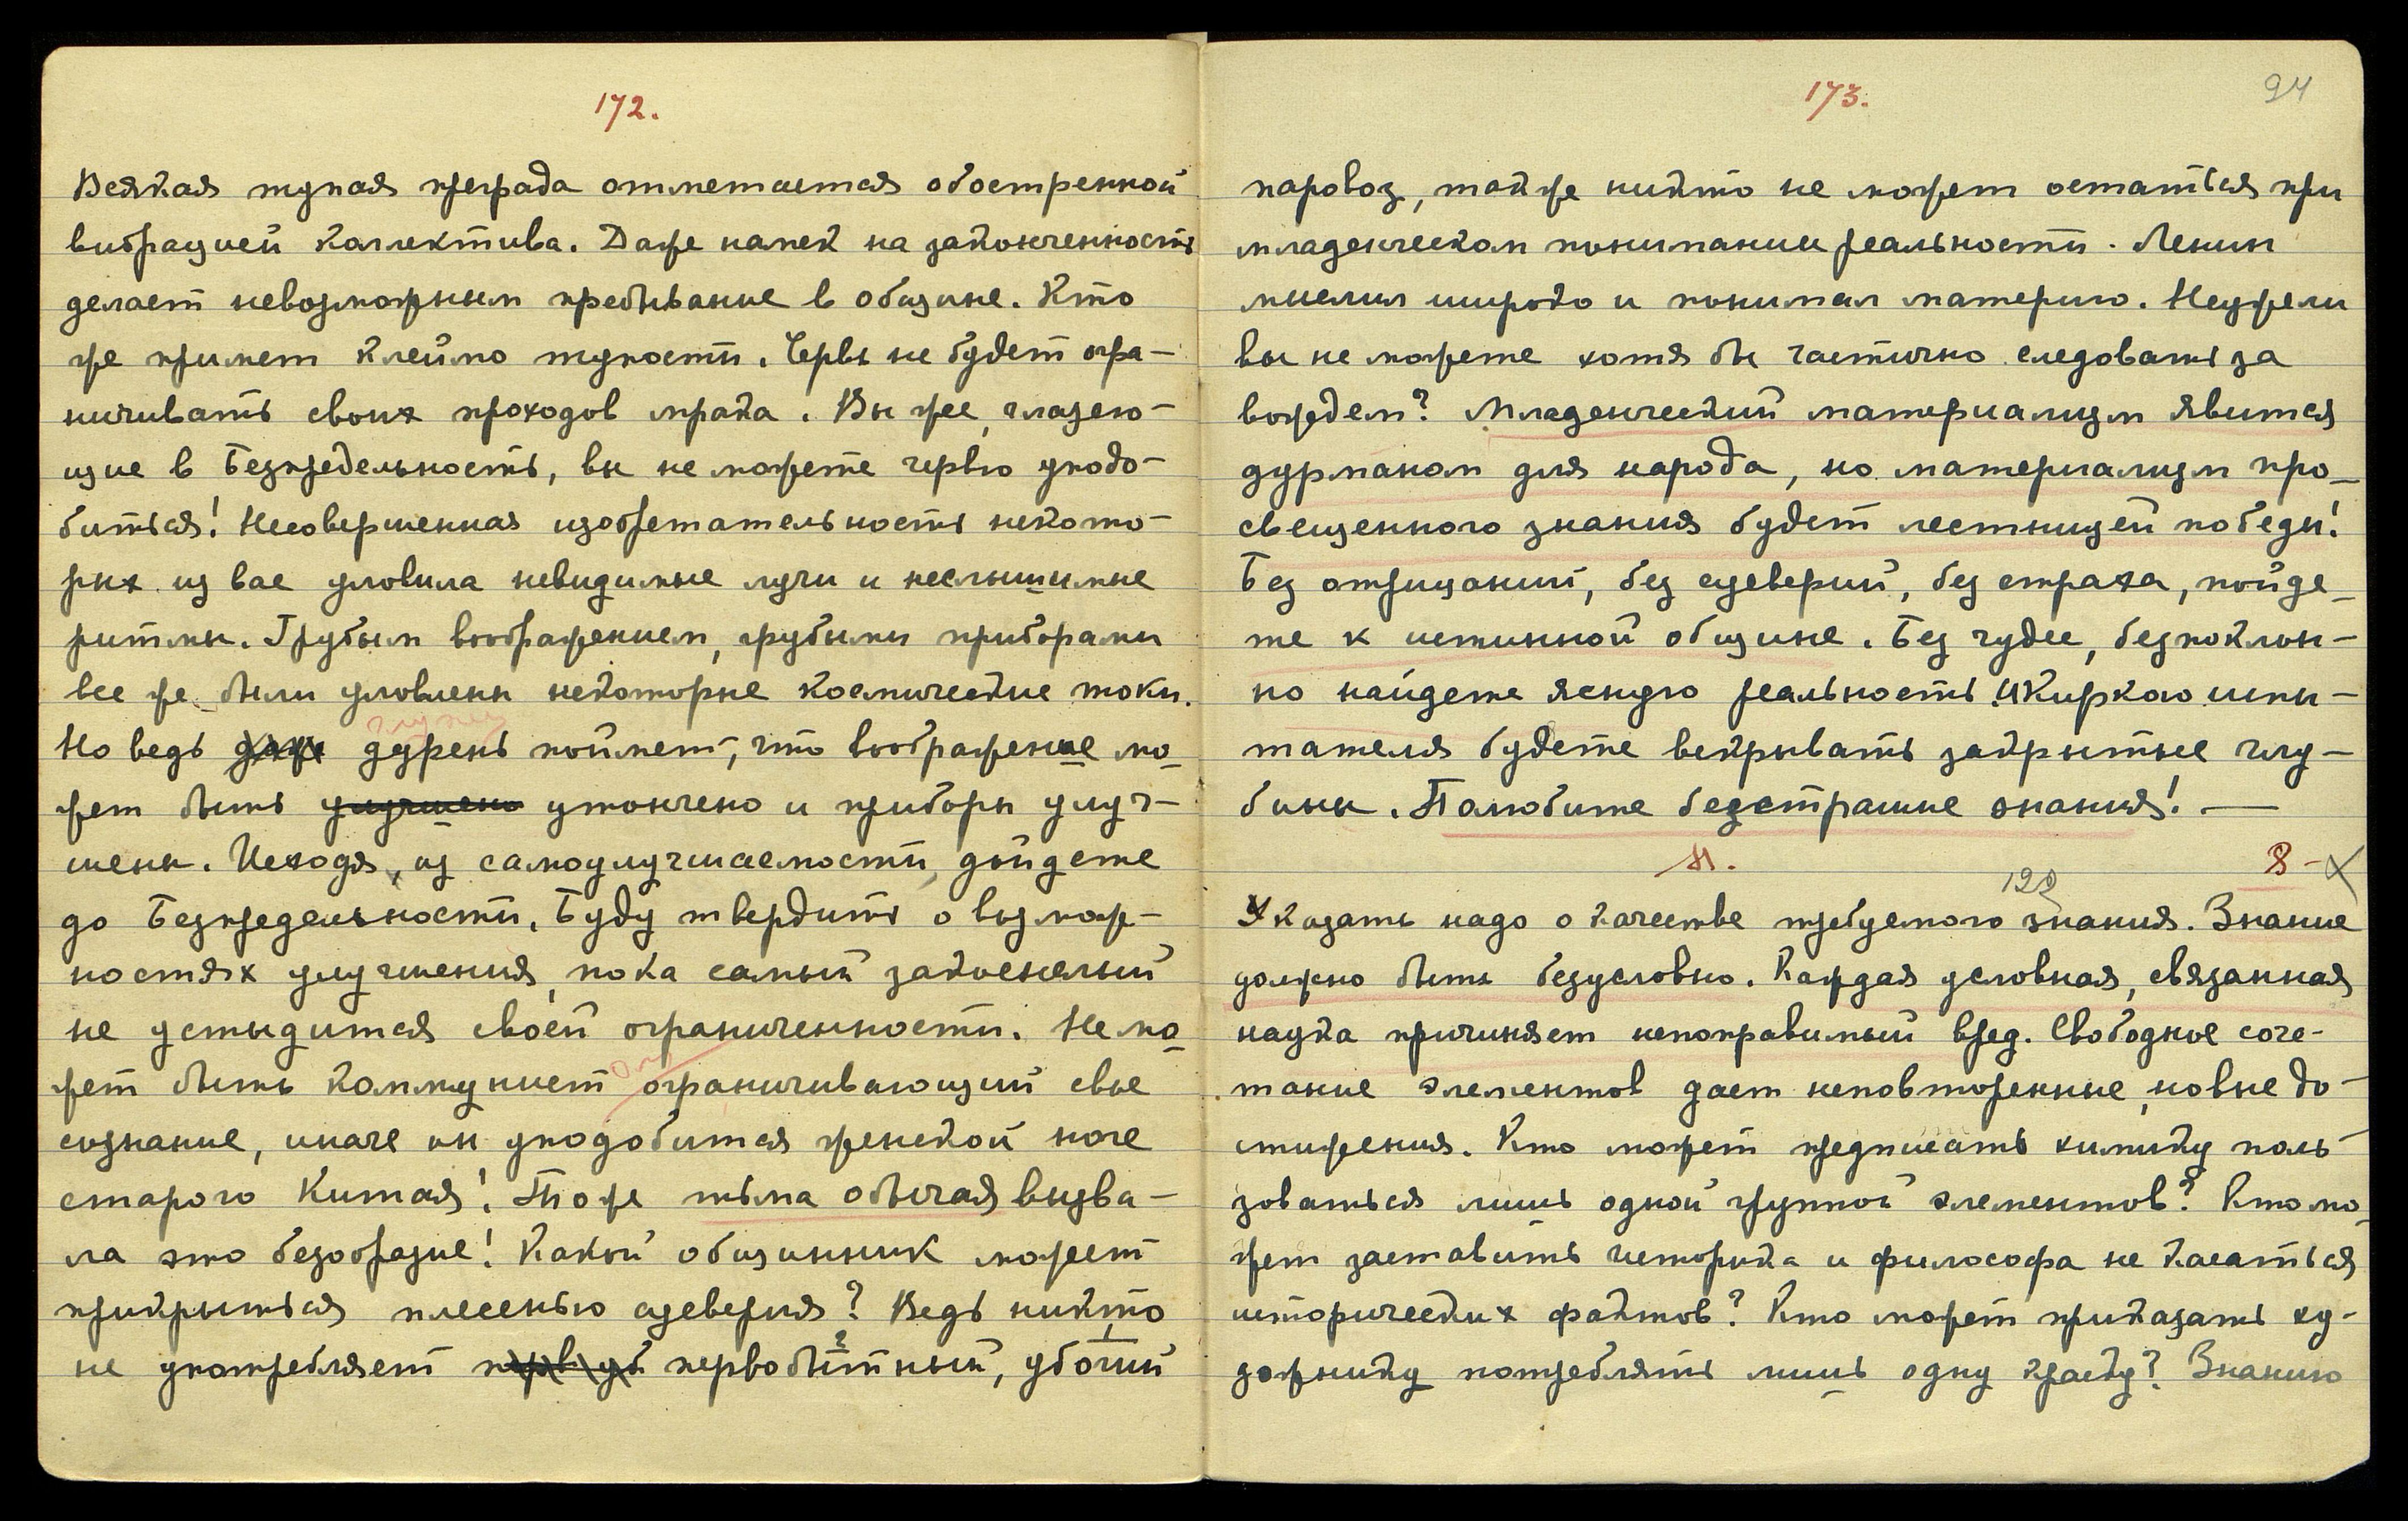 172.
Всякая тупая преграда отметается обостренной
вибрацией коллектива. Даже намек на законченность
делает невозможным пребывание в общине. Кто
же примет клеймо тупости. Червь не будет огра-
ничивать своих проходов мрака. Вы же, глядею-
щие в Безпредельность, вы не можете червю уподо-
биться! Несовершенная изобретательность некото-
рых из вас уловила невидимые лучи и неслышимые
ритмы. Грубым воображением, грубыми приборами
все же были уловлены некоторые космические токи.
Но ведь даже дурень поймет, что воображение мо-
жет быть улучшено утончено и приборы улуч-
шены. Исходя, из самоулучшаемости, дойдете
до Безпредельности. Буду твердить о возмож-
ностях улучшения, пока самый закоснелый
не устыдится своей ограниченности. Не мо-
жет быть коммунист ограничивающий свое
сознание, иначе он уподобится женской ноге
старого Китая! Та же тьма обычая вызва-
ла это безобразие! Какой общинник может
прикрыться плесенью суеверия? Ведь никто
не употребляет первобытный, убогий
173.
94
паровоз, также никто не может остаться при
младенческом понимании реальности. Ленин
мыслил широко и понимал материю. Неужели
вы не можете хотя бы частично следовать за
вождем? Младенческий материализм явится
дурманом для народа, но материализм про-
свещенного знания будет лестницей победы!
Без отрицаний, без суеверий, без страха, пойде-
те к истинной общине. Без чудес, безпоклон-
но найдете ясную реальность и киркою испы-
тателя будете вскрывать закрытые глу-
бины. Полюбите безстрашие знания! —
8 -
122
Указать надо о качестве требуемого знания. Знание
должно быть безусловно. Каждая условная, связанная
наука причиняет непоправимый вред. Свободное соче-
тание элементов дает неповторенные, новые до-
стижения. Кто может предписать химику поль-
зоваться лишь одной группой элементов? Кто мо-
жет заставить историка и философа не касаться
исторических фактов? Кто может приказать ху-
дожнику потреблять лишь одну краску? Знанию